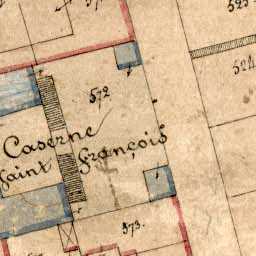 523.
524
572
Caserne
Saint François
573.